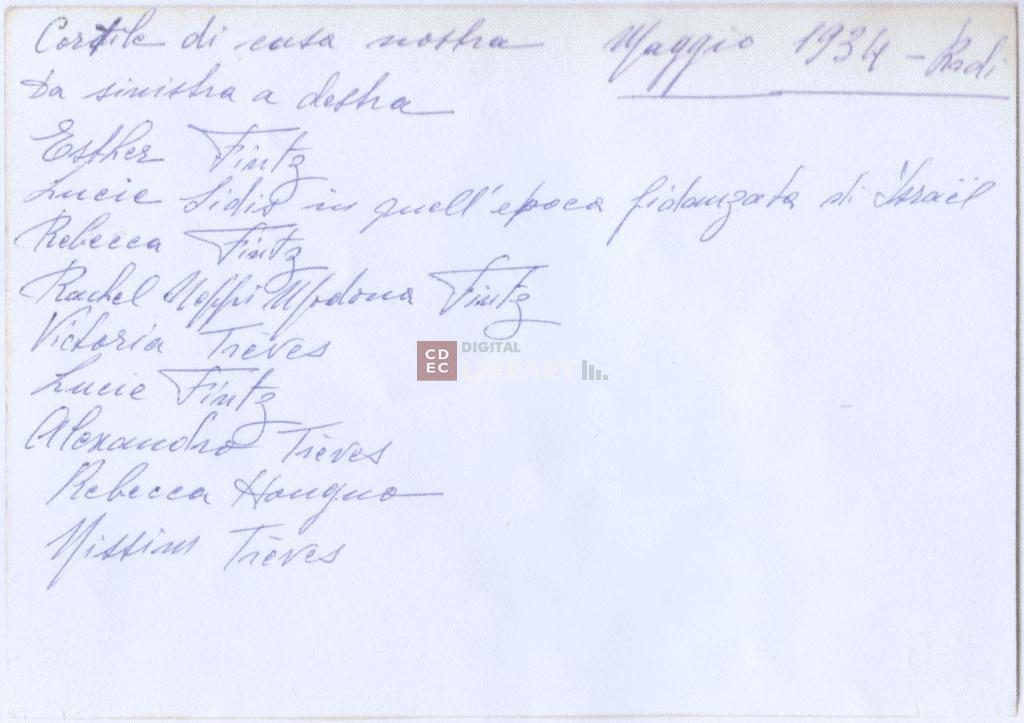 Cortile di casa nostra Maggio 1934 - Rodi
Da sinistra a destra
Esther Fintz
Lucie Sidis in quell'epoca fidanzata di Israël
Rebecca Fintz
Rachel Modona Fintz
Victoria Trèves
Lucie Fintz
Alexandro Trèves
Rebecca
Nissim Trèves
CDEC DIGITAL
LIBRARY